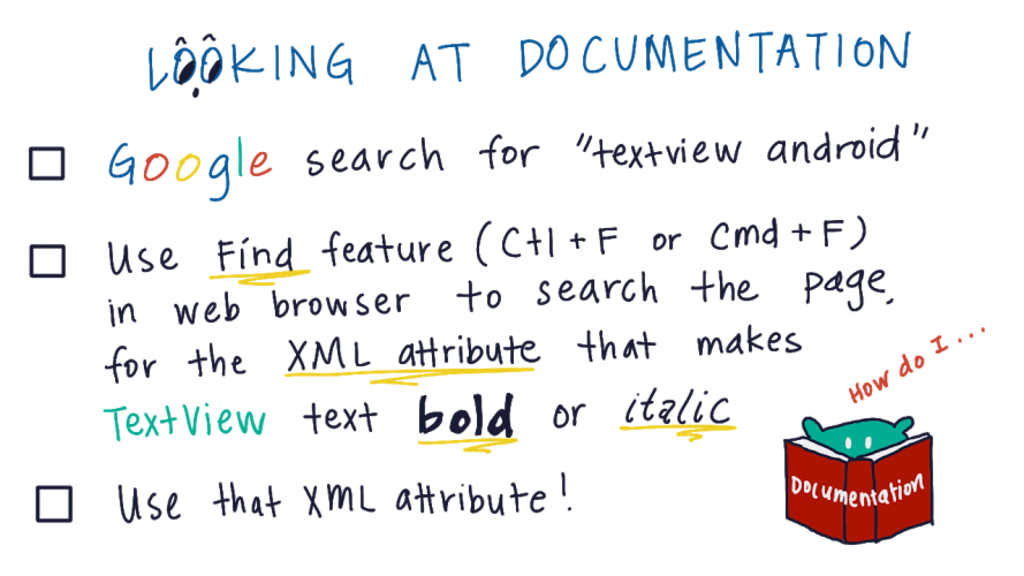 LOOKING AT DOCUMENTATION
Google search for "textview android"
Use Find feature (Ctl + F or Cmd + F)
in web browser to search the page,
for the XML attribute that makes
TextView text bold or italic
Use that XML attribute!
How do I...
Documentation